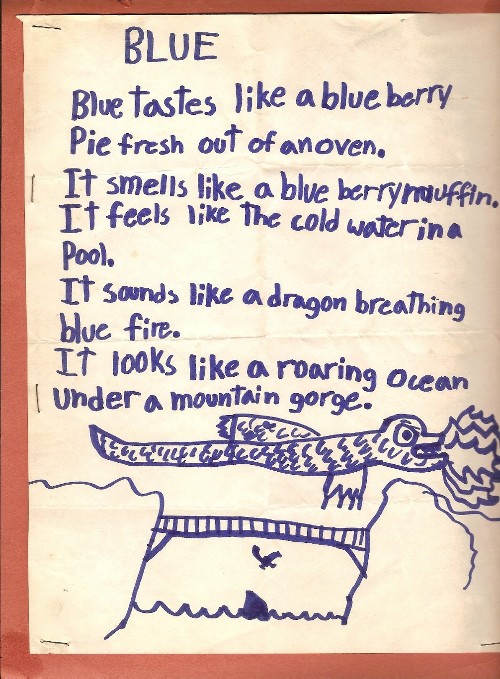 BLUE
Blue tastes like a blue berry
Pie fresh out of an oven.
It smells like a blue berry muffin.
It feels like The cold water in a
Pool.
It sounds like a dragon breathing
blue fire.
It looks like a roaring Ocean
under a mountain gorge.